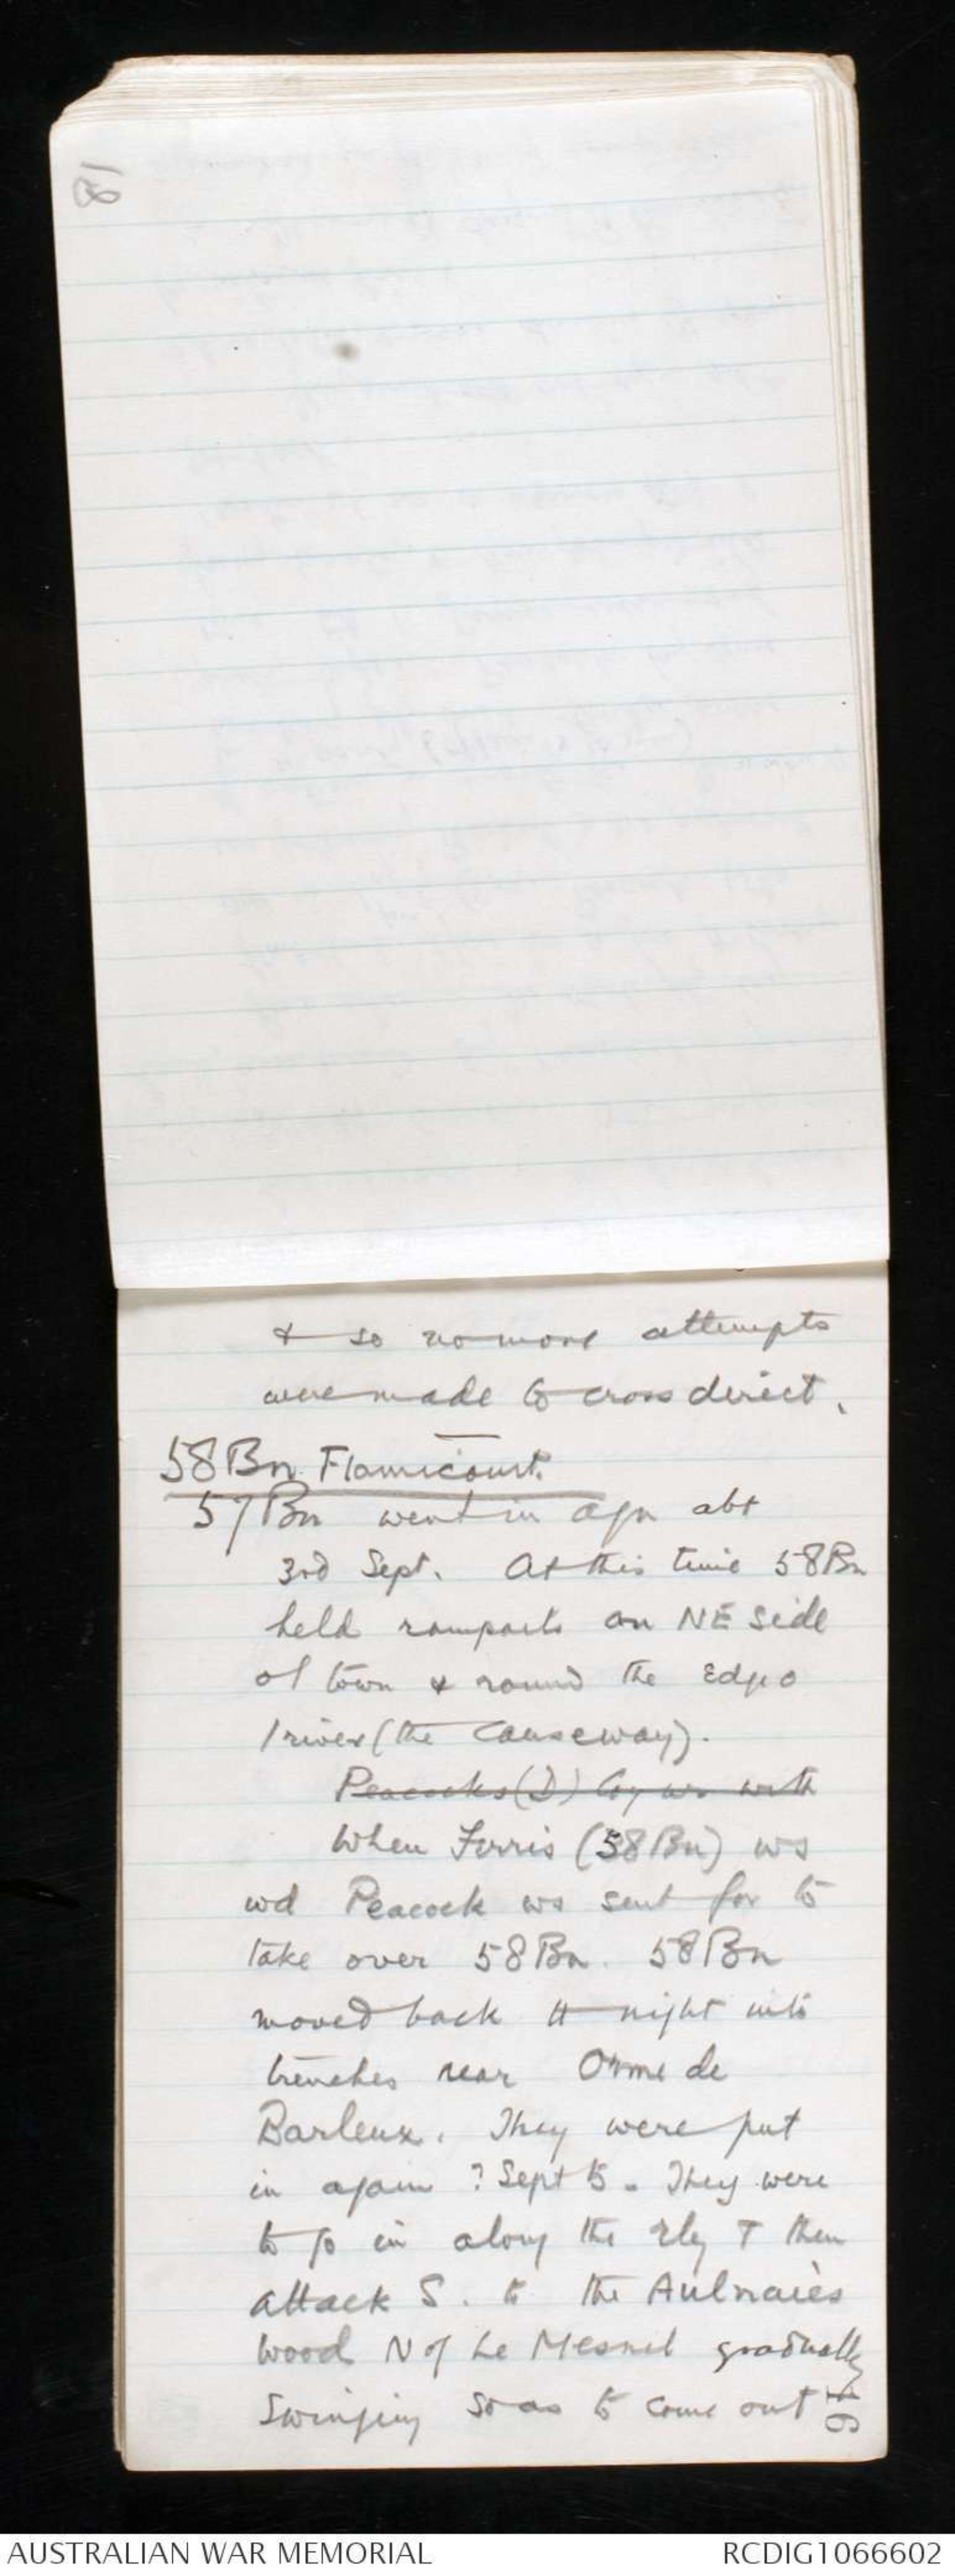 18
& so no more attempts
were made to cross direct.
58 Bn Flamicourt.
57 Bn went in agn abt
3rd Sept. At this time 58 Bn
held ramparts on NE side
of town & round the edge o
/ river (the causeway).
Peacocks (D) Coy ws with
When Ferris (58 Bn) ws
wd Peacock ws sent for to
take over 58 Bn. 58 Bn
moved back tt night into
trenches near Orme de
Barleux. They were put
in again ? Sept 5. They were
to go in along the rly & then
attack S. to the Aulnaies
wood N of Le Mesnil gradually
swinging so as to come out
19
AUSTRALIAN WAR MEMORIAL
RCDIG1066602